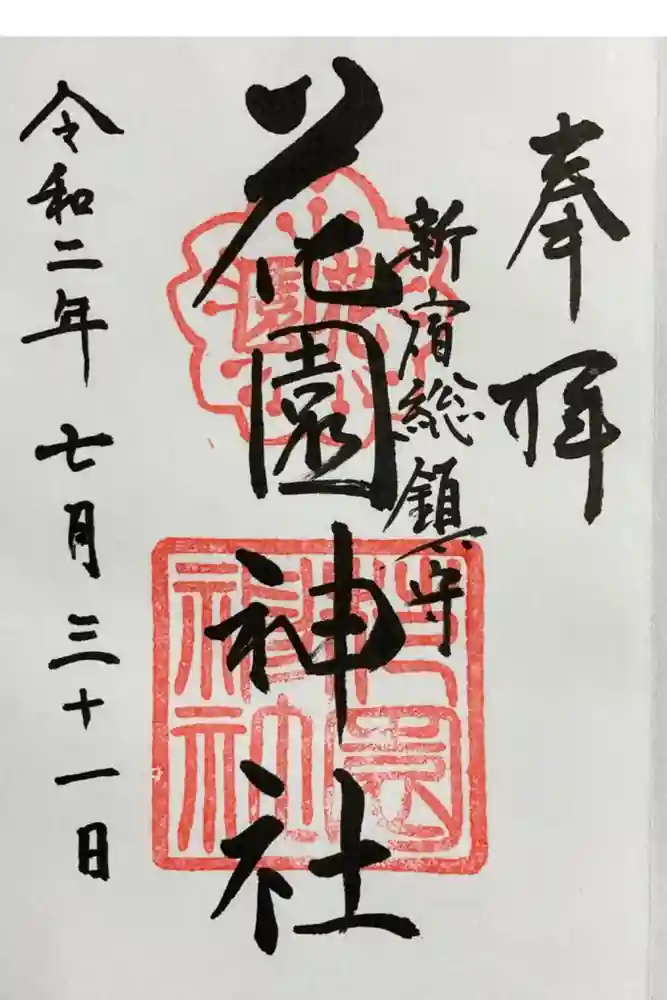 奉拝
新宿総鎮守
花園神社
花園
花園神社
令和二年七月三十一日